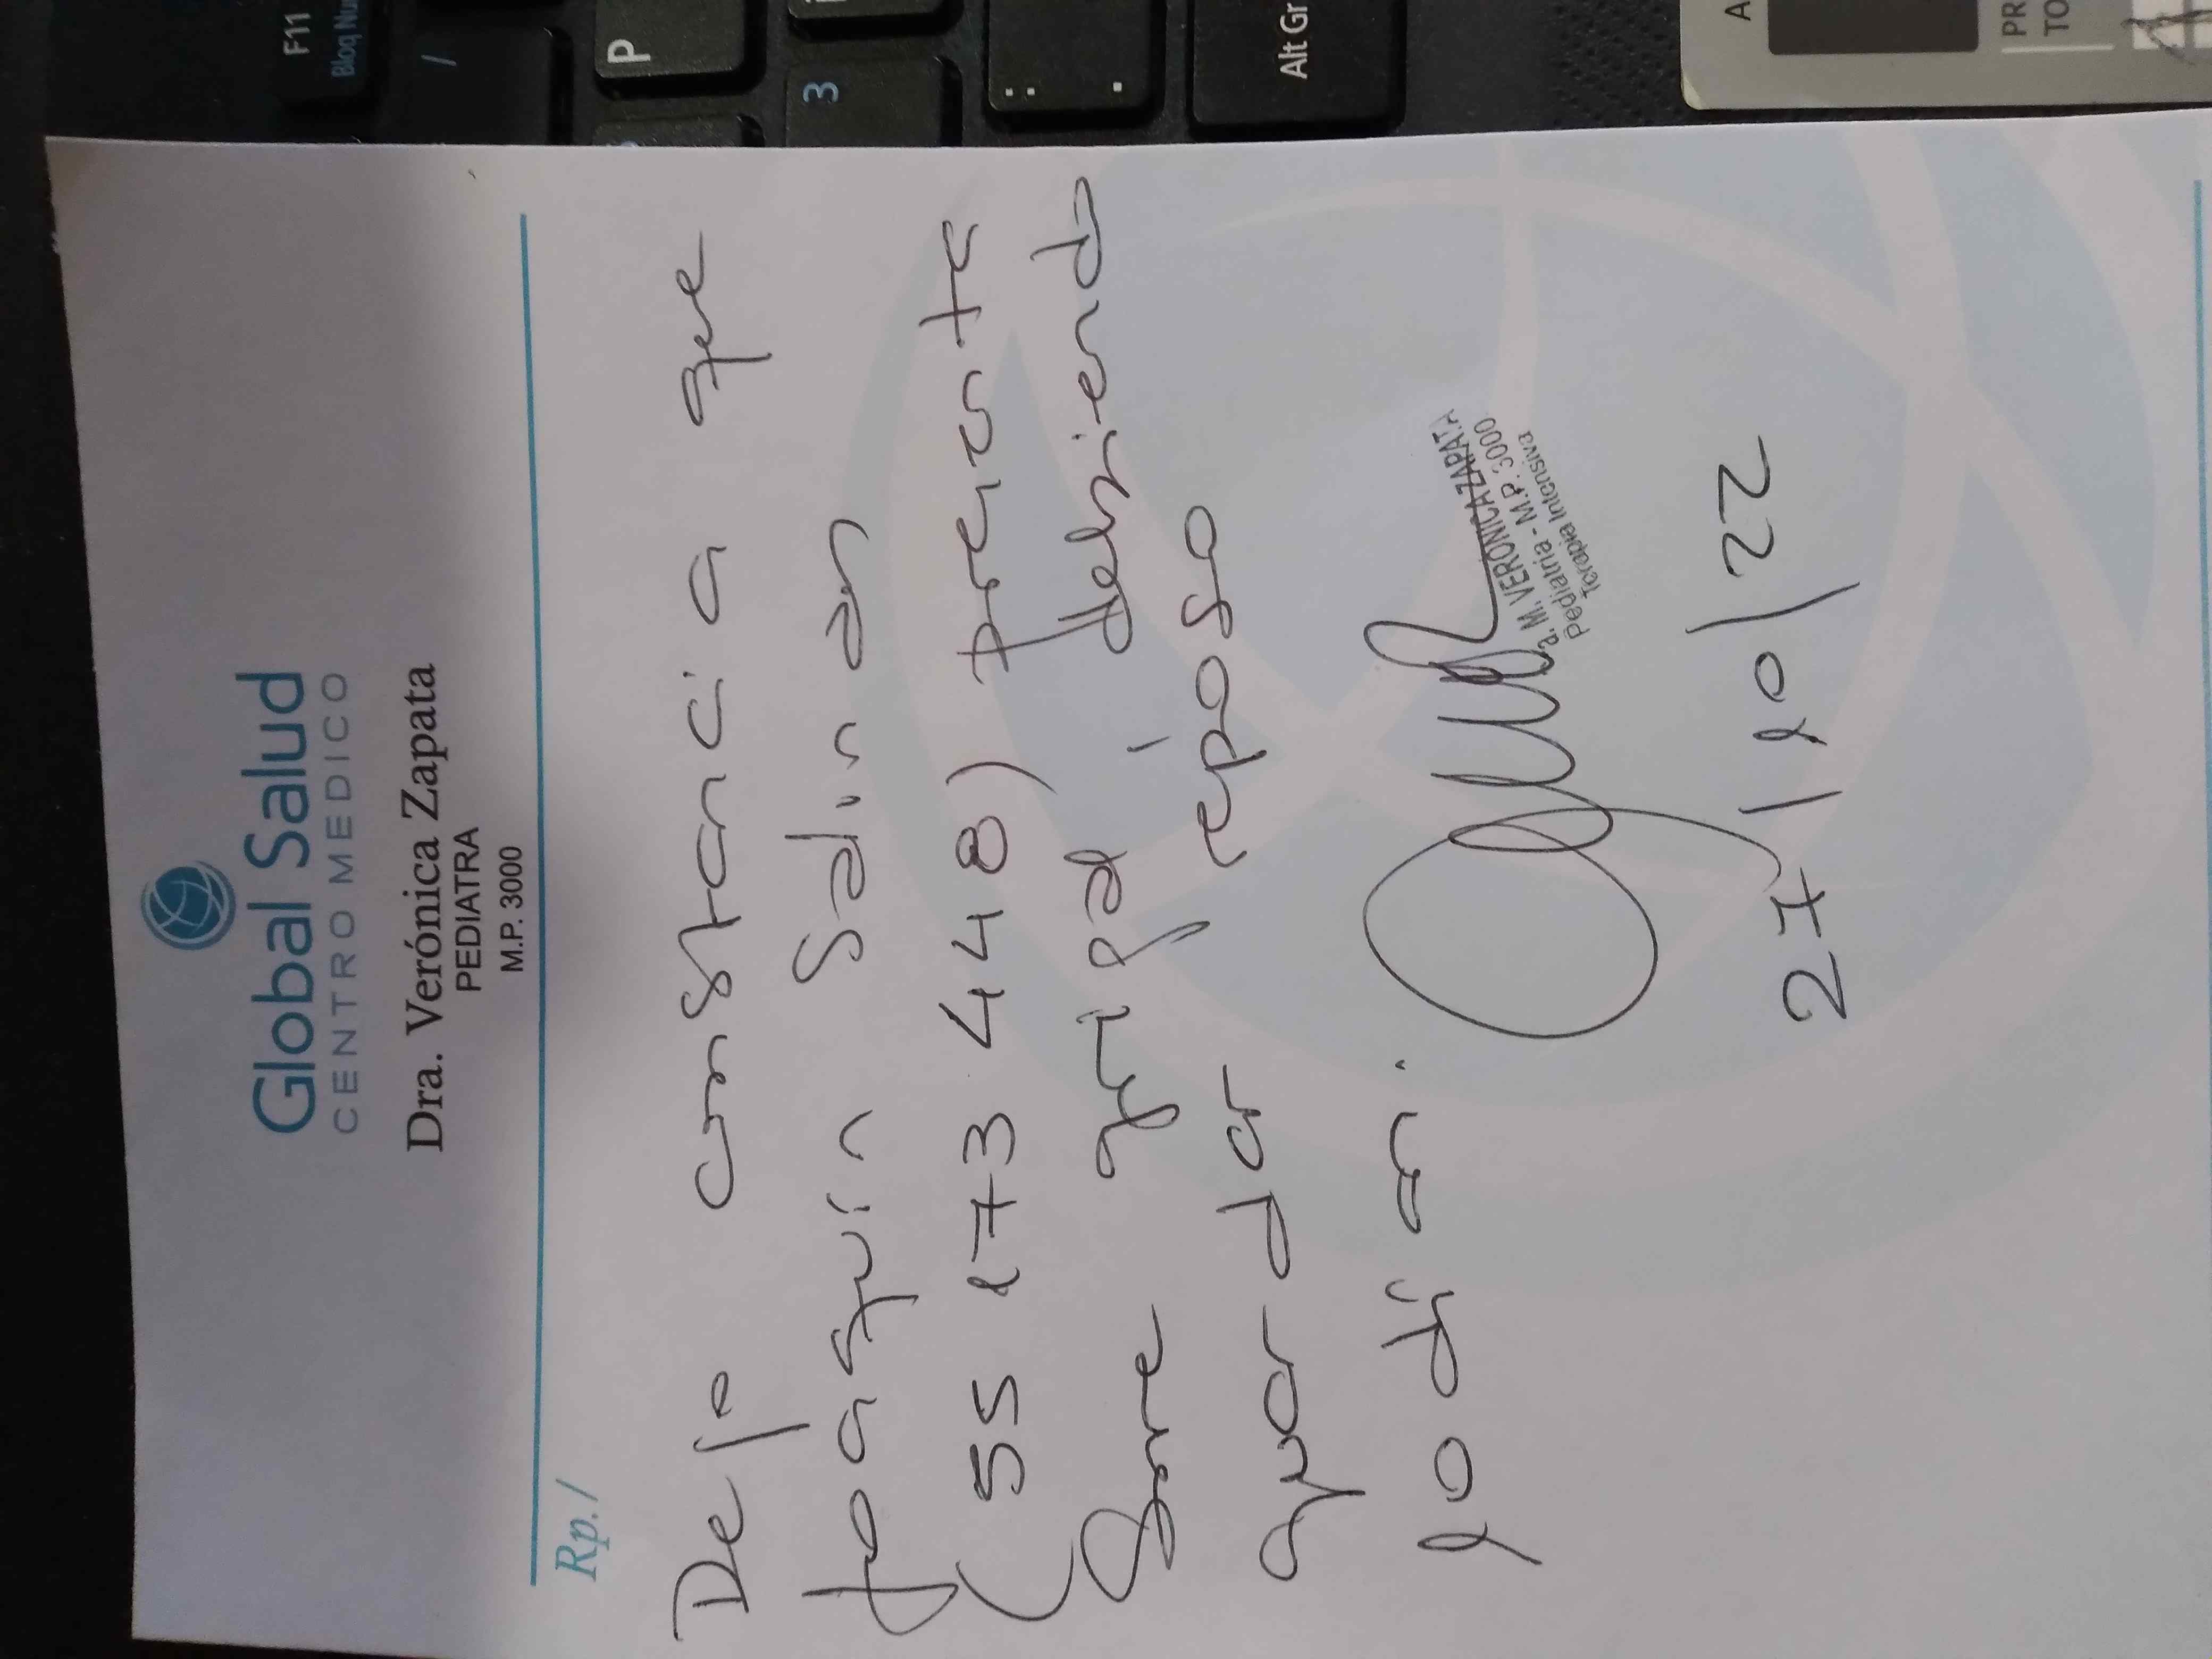 F11
Bloq Nu
/
P
3
:
.
Alt Gr
A
PR
TO
Global Salud
CENTRO MEDICO
Dra. Verónica Zapata
PEDIATRA
M.P. 3000
Rp./
Dejo constancia que
Joaquín Salinas
(55 173 448) presente
Sme gripal, debiend
guardar reposo
10 días.
a. M. VERONICA ZAPATA
Pediatria - M.P. 3000
Terapia Intensiva
27/10/22